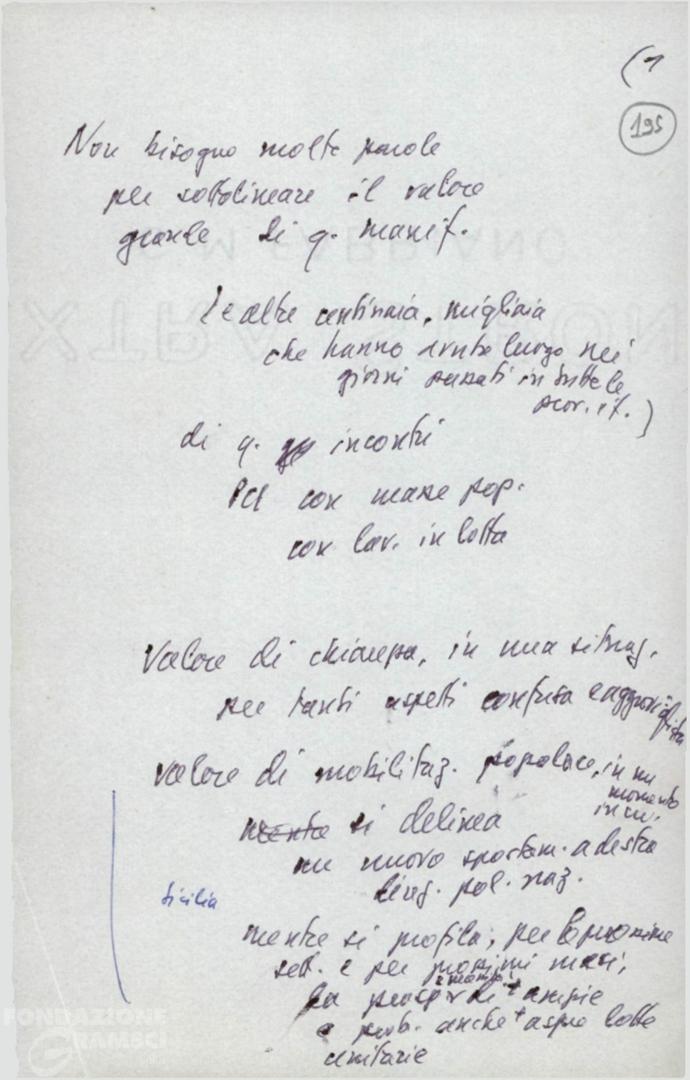 (1
195
Non bisogno molte parole
per sottolineare il valore
grande di q. manif.
(e altre centinaia, migliaia
che hanno avuto luogo nei
giorni passati in tutte le
di q. incontri
PCI con masse pop.
con lav. in lotta
Valore di chiarezza, in una situaz.
per tanti aspetti confusa e
valore di mobilitaz. popolare, in un
momento
in cui
mentre si delinea
un nuovo spostam. a destra
pol. naz.
Sicilia
mentre si profila, per le prossime
sett. e per prossimi mesi,
la di + ampie
e prob. anche + aspre lotte
unitarie
FONDAZIONE
GRAMSCI